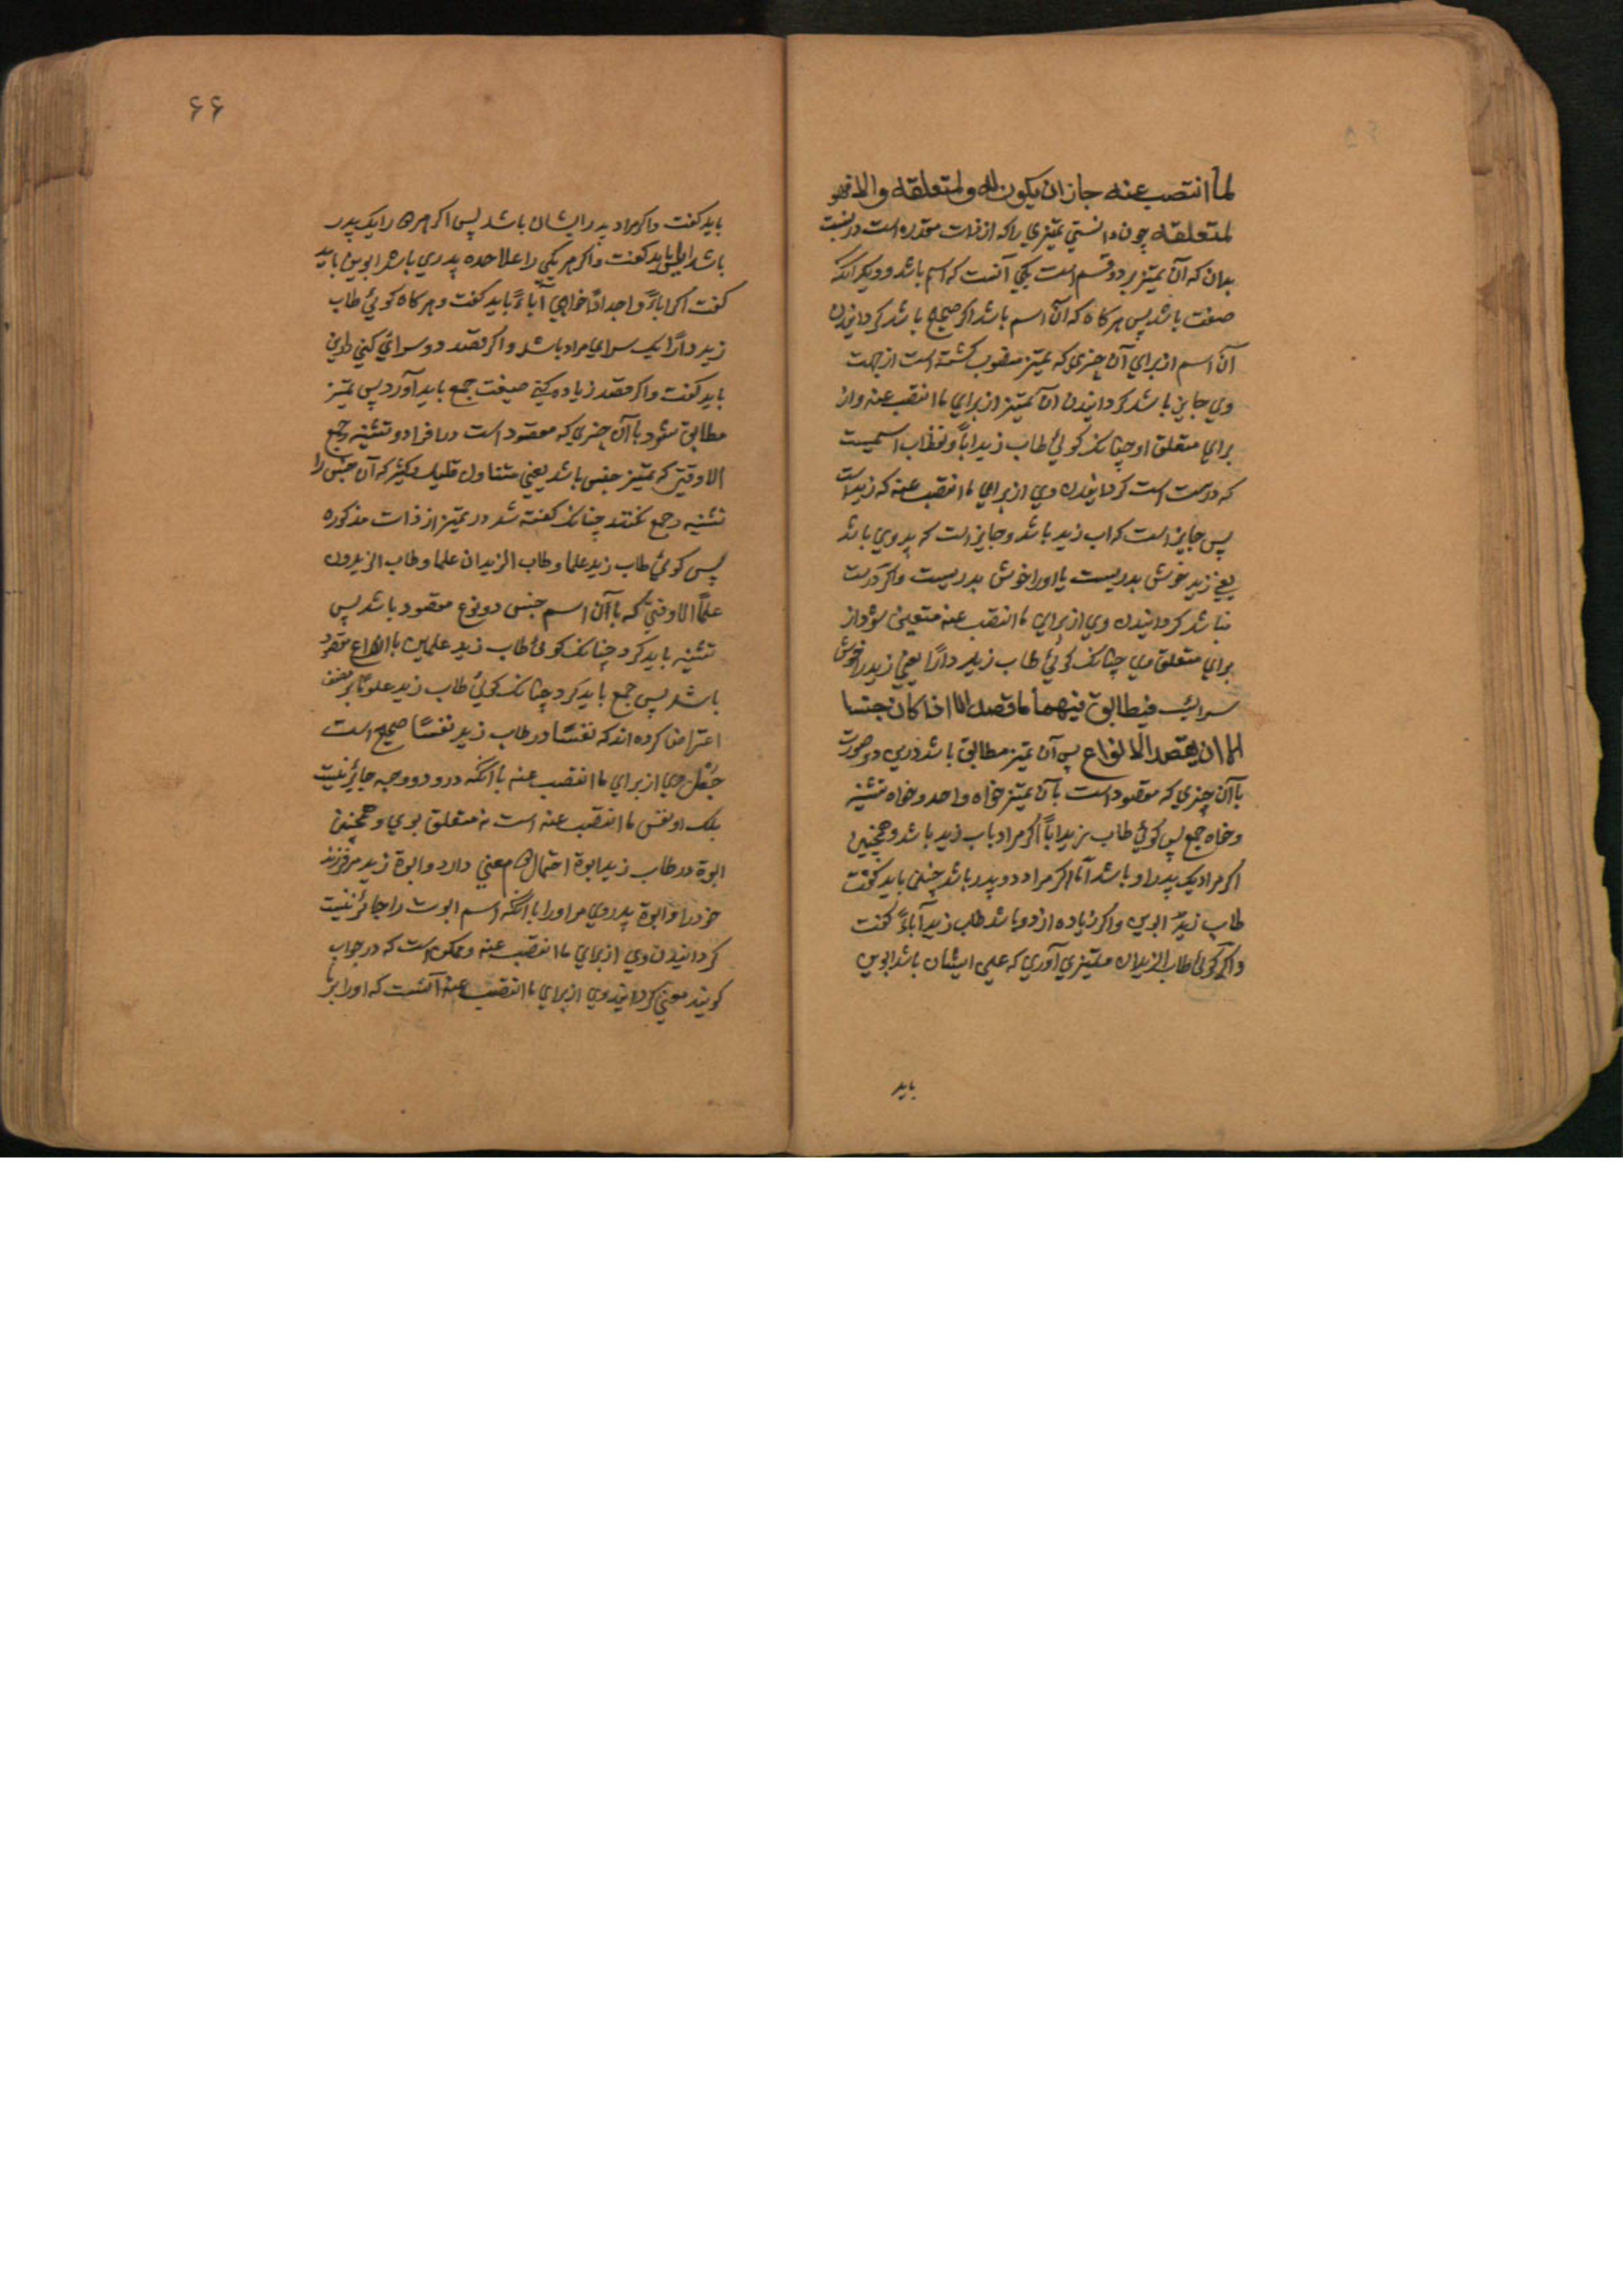 لما انتصب عنه جاز ان یکون له و لمتعلقه والا فهو
لمتعلقه چون دانستی تمیزی را که از ذات مقدره است در نسبت
بدان که آن تمیز بر دو قسم است یکی آنست که اسم باشد و دیکر آنکه
صفت باشد پس هر کاه که آن اسم باشد اکر صحیح باشد کردانیدن
آن اسم از برای آن چیزی که تمیز منصوب کشته است از جهت
وی جایز باشد کردانیدن آن تمیز از برای ما انتصب عنه و از
برای متعلق او چنانک کوئی طاب زید اباً و لفظ اب اسمیست
که درست است کردانیدن وی از برای ما انتصب عنه که زیداست
پس جایز است که اب زید باشد و جایز است که پدر وی باشد
یعنی زید خوش پدریست یا او را خوش پدریست و اکر درست
نباشد کردانیدن وی از برای ما انتصب عنه متعین شود از
برای متعلق وی چنانک کوئی طاب زید داراً یعنی زید را خوش
سرائیست فیطابق فیهما ما قصد الا اذا کان جنسا
الا ان یقصد الانواع پس آن تمیز مطابق باشد درین دو صورت
با آن چیزی که مقصود است بآن تمیز خواه واحد و خواه تثنیه
و خواه جمع پس کوئی طاب زید اباً اکر مراد باب زید باشد و همچنین
اکر مراد یک پدر او باشد اما اکر مراد دو پدر باشد چنین باید کفت
طاب زید ابوین و اکر زیاده از دو باشد طاب زید آباءً کفت
و اکر کوئی طاب الزیدان و تمیزی آوری که علی ایشان باشد ابوین
باید
۶۶
باید کفت و اکر مراد پدر ایشان باشد پس اکر هر دو را یک پدر
باشد اباً باید کفت و اکر هر یکی را علاحده پدری باشد ابوین باید
کفت اکر اباءً و اجداداً خواهی آباءً باید کفت و هر کاه کوئی طاب
زید داراً یک سرای مراد باشد و اکر قصد دو سرای کنی دارین
باید کفت و اکر قصد زیاده کنی صیغت جمع باید آورد پس تمیز
مطابق شود با آن چیزی که مقصود است در افراد و تثنیه و جمع
الا وقتی که تمیز جنس باشد یعنی متناول قلیل و کثیر که آن جنس را
تثنیه و جمع نکنند چنانک کفته شد در تمیز از ذات مذکوره
پس کوئی طاب زید علما و طاب الزیدان علما و طاب الزیدون
علماً الا وقتی که با آن اسم جنس دو نوع مقصود باشد پس
تثنیه باید کرد چنانک کوئی طاب زید علمین یا انواع مقصود
باشد پس جمع باید کرد چنانک کوئی طاب زید علوماً بر مصنف
اعتراض کرده اند که نفسًا در طاب زید نفسًا صحیح است
جعل وی از برای ما انتصب عنه با آنکه درو دو وجه جایز نیست
بلک او نفس ما انتصب عنه است نه متعلق بوی و همچنین
ابوة در طاب زید ابوة احتمال دو معنی دارد و ابوة زید مر فرزند
خود را و ابوة پدر وی مر او را با آنکه اسم ابوت را جائز نیست
کردانیدن وی از برای ما انتصب عنه و ممکن است که در جواب
کویند معنی کردانیدن وی از برای ما انتصب عنه آنست که او را بر